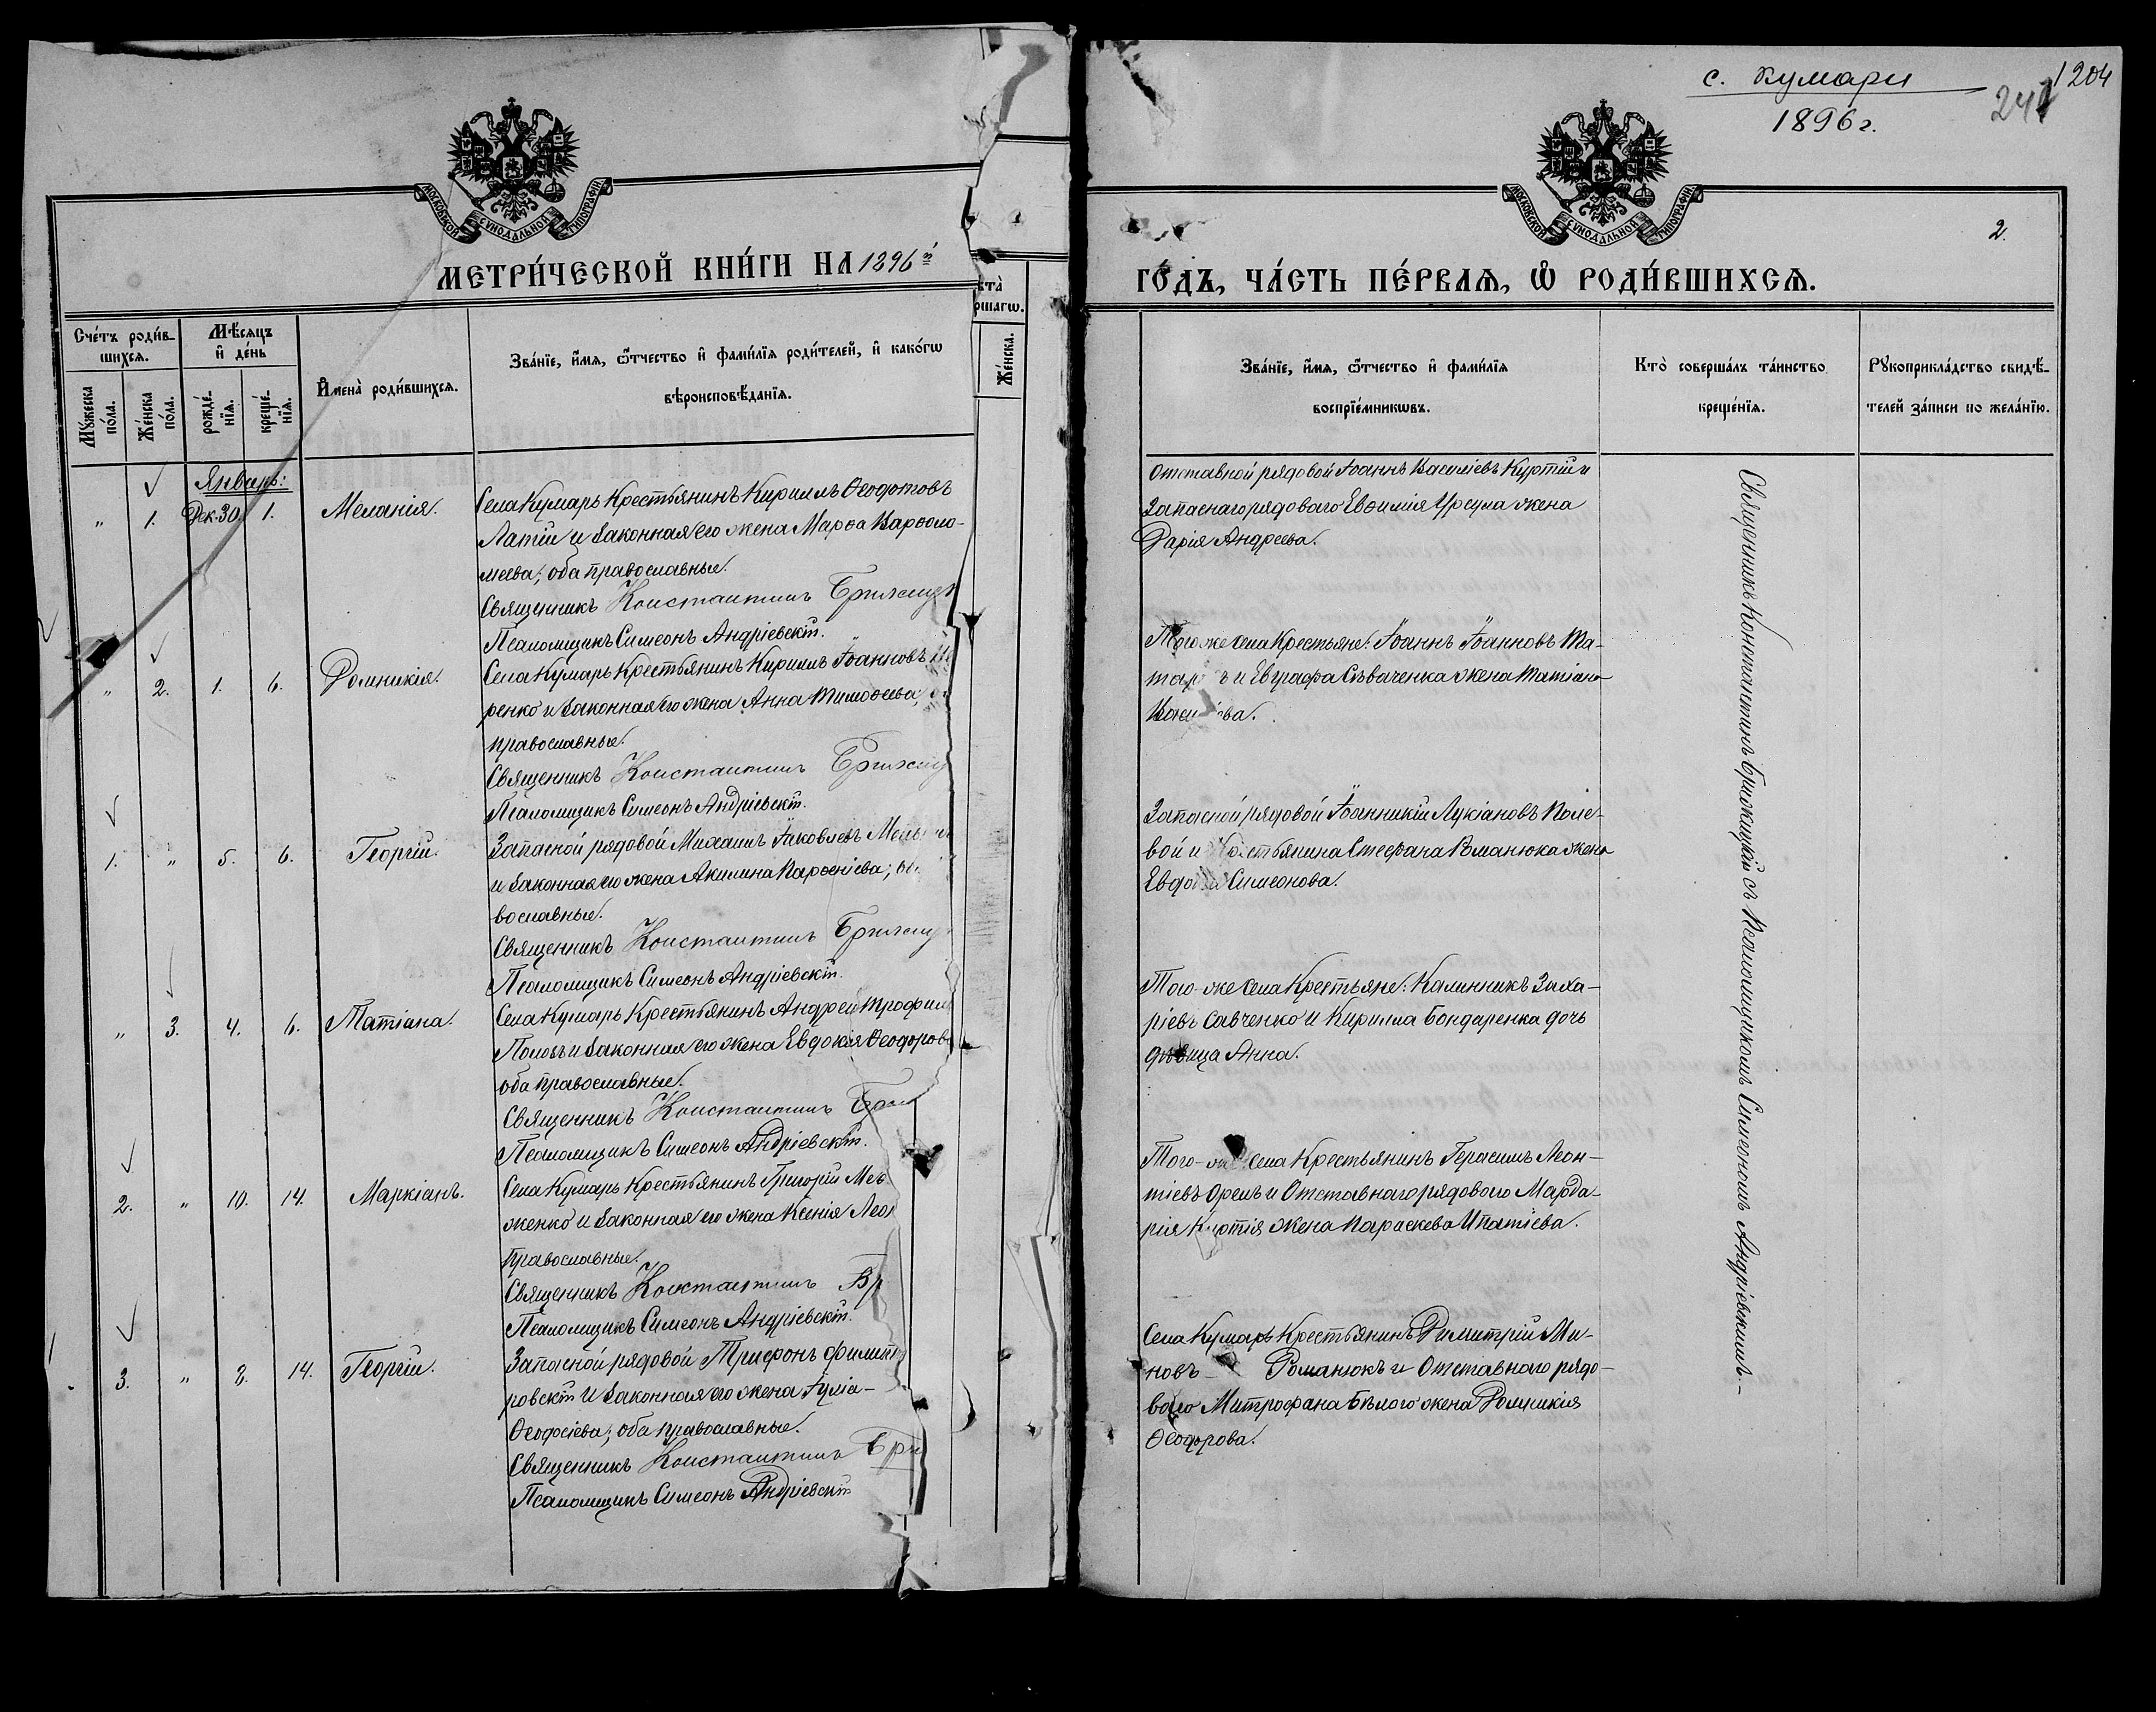 с. Кумари
1896 г.
1204
241
МОСКОВСКОЙ СѴНОДАЛЬНОЙ ТИПОГРАФІИ
МОСКОВСКОЙ СѴНОДАЛЬНОЙ ТИПОГРАФІИ
2.
МЕТРИ́ЧЕСКОЙ КНИ́ГИ НА 1896й
ГО́ДЪ, ЧА́СТЬ ПЕ́РВАѦ, Ѡ҆ РОДИ́ВШИХСѦ.
Сче́тъ роди́в-
шихсѧ.
Мꙋ́жеска по́ла.
Же́нска по́ла.
Мѣ́сѧцъ
и҆ де́нь
рожде́нїѧ.
креще́нїѧ.
И҆мена̀ роди́вшихсѧ.
Зва́нїе, и҆́мѧ, ѻ҆́тчество и҆ фами́лїѧ роди́телей, и҆ како́гѡ
вѣроисповѣ́данїѧ.
Же́нска.
Зва́нїе, и҆́мѧ, ѻ҆́тчество и҆ фами́лїѧ
воспрїе́мникѡвъ.
Кто̀ соверша́лъ та́инство
креще́нїѧ.
Рꙋкоприкла́дство свидѣ́-
телей за́писи по жела́нїю.
Январь:
" 1. Дек. 30. 1. Меланія.
Села Кумарь Крестьянинъ Кириллъ Ѳеодотовъ
Латій и законная его жена Марѳа Варѳоло-
меева; оба православные.
Священникъ Константинъ
Псаломщикъ Симеонъ Андріевскій.
Отставной рядовой Іоаннъ Василіевъ Куртій и
Запаснаго рядоваго Евѳимія Урсула жена
Дарія Андреева.
" 2. 1. 6. Домникія.
Села Кумарь Крестьянинъ Кириллъ Іоанновъ
ренко и законная его жена Анна Тимоѳеева;
православные.
Священникъ Константинъ
Псаломщикъ Симеонъ Андріевскій.
Того же села Крестьяне: Іоаннъ Іоанновъ Та-
и Евграфа Съваченка жена Татіана
1. " 5. 6. Георгій.
Запасной рядовой Михаилъ Іаковлевъ
и законная его жена Акилина Парѳеніева;
вославные.
Священникъ Константинъ
Псаломщикъ Симеонъ Андріевскій.
Запасной рядовой Іоанникій Лукіановъ Поле-
вой и Крестьянина Стефана Романюка жена
Евдокія Симеонова.
" 3. 4. 6. Татіана.
Села Кумарь Крестьянинъ Андрей
и законная его жена Евдокія
оба православные.
Священникъ Константинъ
Псаломщикъ Симеонъ Андріевскій.
Того-же села Крестьяне: Калинникъ Заха-
ріевъ Савченко и Кирилла Бондаренка дочь
дѣвица Анна.
2. " 10. 14. Маркіанъ.
Села Кумарь Крестьянинъ Григорій
женко и законная его жена Ксенія
православные.
Священникъ Константинъ
Псаломщикъ Симеонъ Андріевскій.
Того-же села Крестьянинъ Герасимъ Леон-
тіевъ Орелъ и Отставнаго рядоваго Марда-
рія жена Параскева Ипатіева.
3. " 8. 14. Георгій.
Запасной рядовой Трифонъ
ровскій и законная его жена Іулія-
Ѳеодосіева; оба православные.
Священникъ Константинъ
Псаломщикъ Симеонъ Андріевскій
Села Кумарь Крестьянинъ Димитрій Ми-
новъ- Романюкъ и Отставнаго рядо-
ваго Митрофана Бѣлого жена Домникія
Ѳеодорова.
Священникъ Константинъ Брижицкій съ Псаломщикомъ Симеономъ Андріевскимъ.-